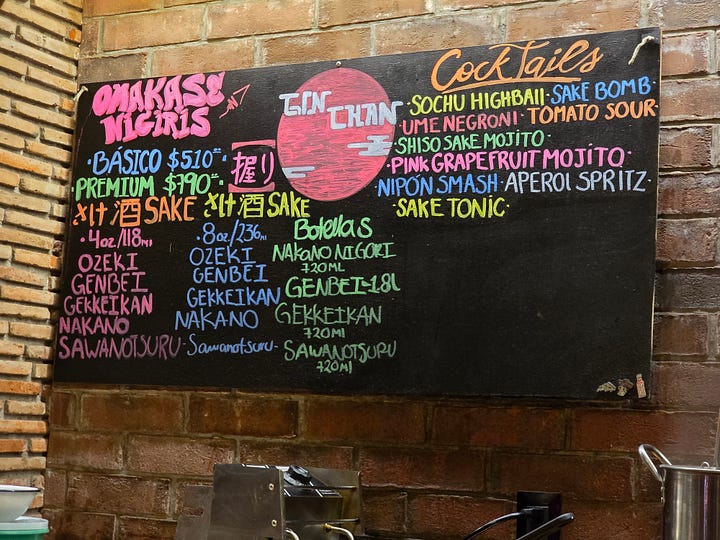 OMAKASE
NIGIRIS
·BÁSICO $510.00
·PREMIUM $790.00
握り
GIN
CHAN
CockTails
·SOCHU HIGHBAll·SAKE BOMB·
·UME NEGRONI·TOMATO SOUR·
·SHISO SAKE MOJITO·
·PINK GRAPEFRUIT MOJITO·
·NIPÓN SMASH·APEROl SPRITZ·
·SAKE TONIC·
さけ 酒 SAKE
·4oz/118ml
OZEKI
GENBEI
GEKKEIKAN
NAKANO
SAWANOTSURU·
さけ 酒 SAKE
·8oz/236ml
OZEKI
GENBEI
GEKKEIKAN
NAKANO
·Sawanotsuru·
BotellaS
NAKANO NIGORI
720ML
GENBEI-1.8l
GEKKEIKAN
720Ml
SAWANOTSURU
720Ml